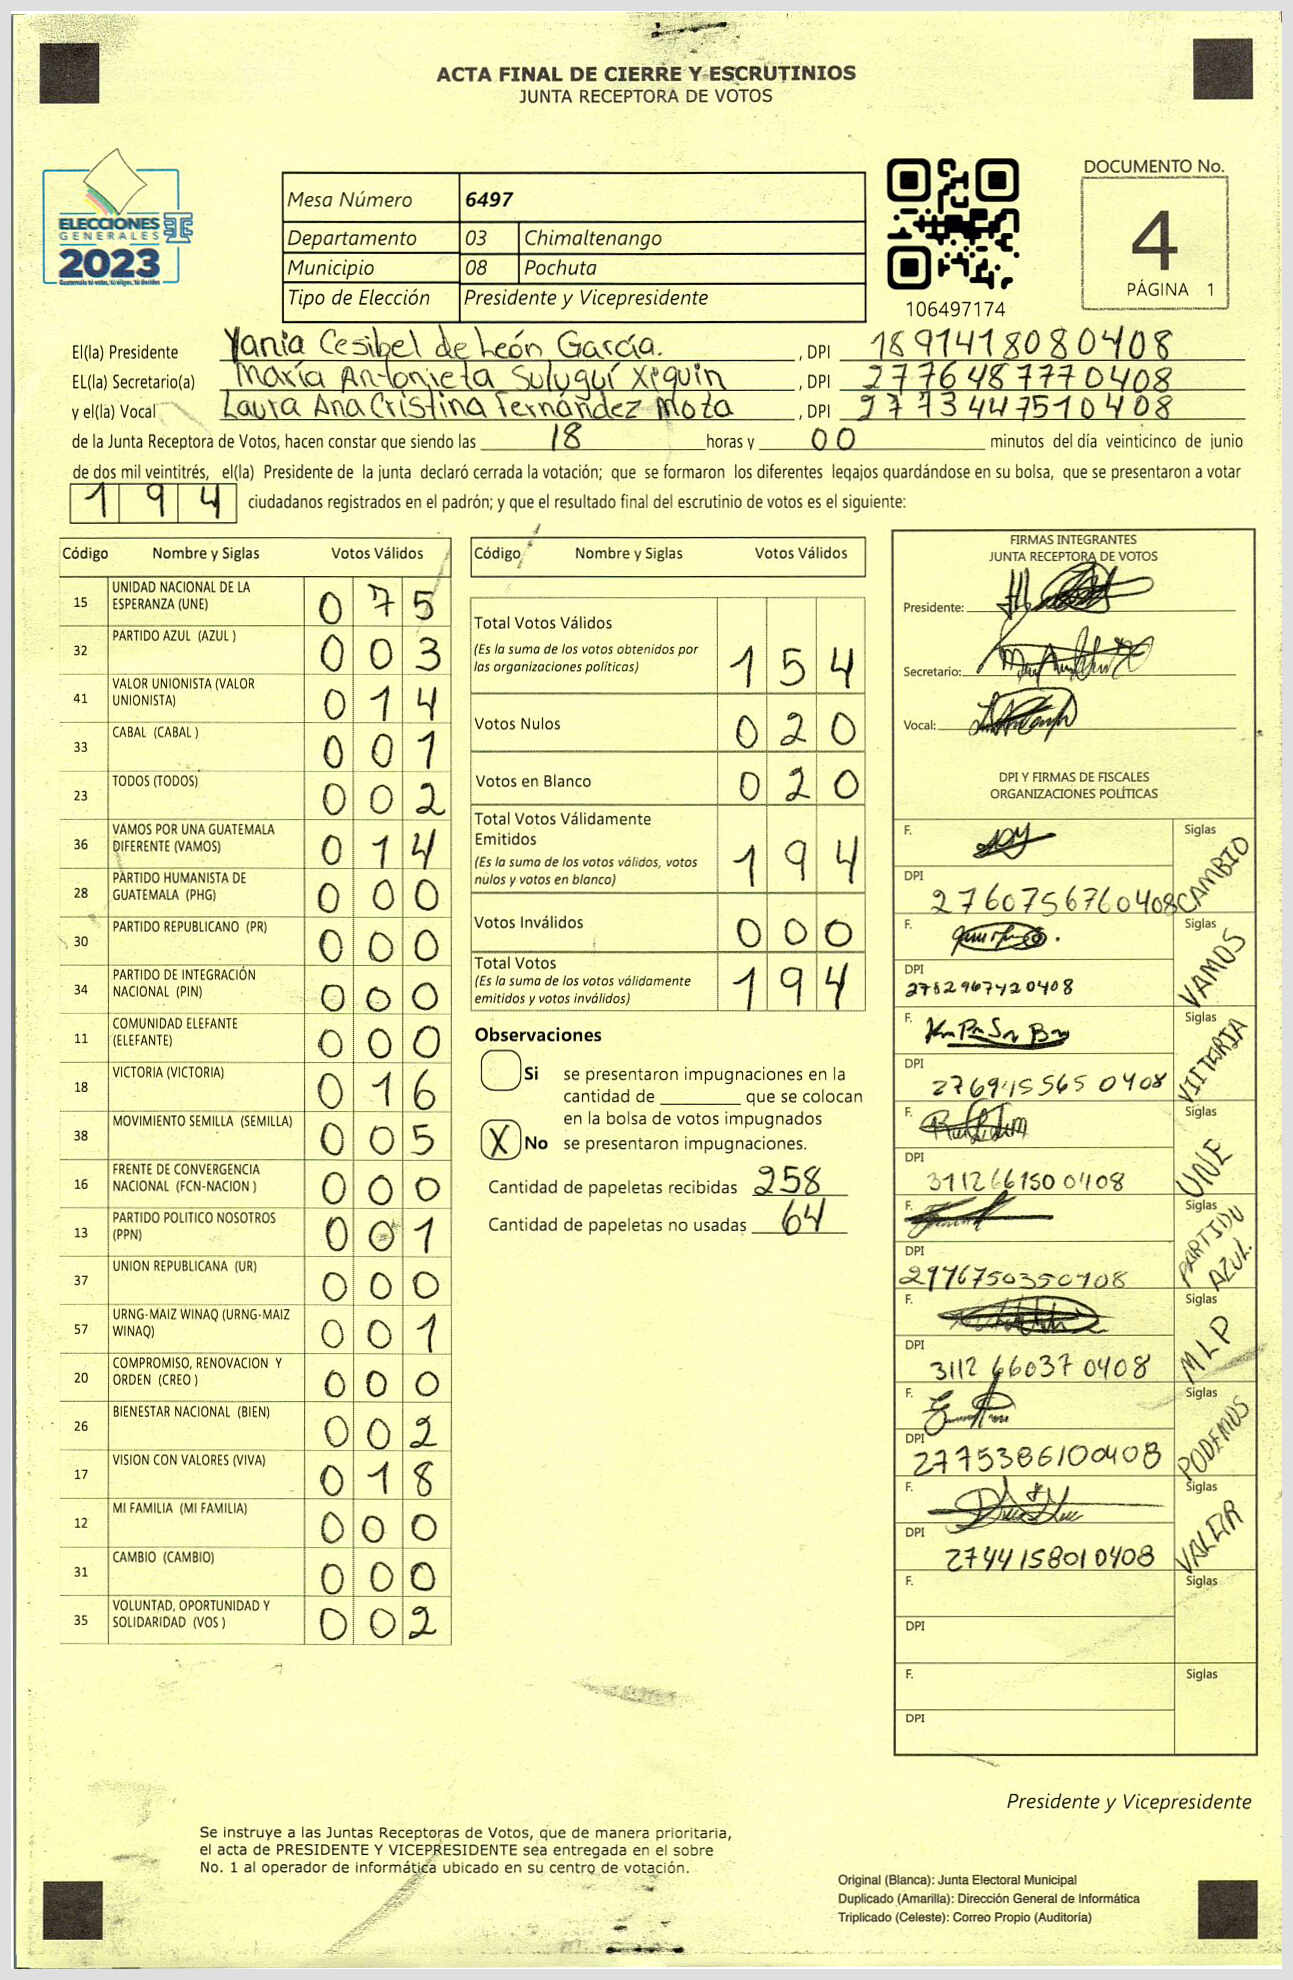 ACTA FINAL DE CIERRE Y ESCRUTINIOS
JUNTA RECEPTORA DE VOTOS
ELECCIONES
GENERALES
2023
Mesa Número 6497
Departamento 03 Chimaltenango
Municipio 08 Pochuta
Tipo de Elección Presidente y Vicepresidente
106497174
DOCUMENTO No.
4
PÁGINA 1
El(la) Presidente Yania Cesibel de León García. , DPI 1891418080408
EL(la) Secretario(a) María Antonieta Suluguí Xiquin , DPI 2776487770408
y el(la) Vocal Laura Ana Cristina Fernández Mota , DPI 2773447510408
de la Junta Receptora de Votos, hacen constar que siendo las 18 horas y 00 minutos del día veinticinco de junio
de dos mil veintitrés, el(la) Presidente de la junta declaró cerrada la votación; que se formaron los diferentes legajos guardándose en su bolsa, que se presentaron a votar
194 ciudadanos registrados en el padrón; y que el resultado final del escrutinio de votos es el siguiente:
Código Nombre y Siglas Votos Válidos
15 UNIDAD NACIONAL DE LA ESPERANZA (UNE) 075
32 PARTIDO AZUL (AZUL ) 003
41 VALOR UNIONISTA (VALOR UNIONISTA) 014
33 CABAL (CABAL ) 001
23 TODOS (TODOS) 002
36 VAMOS POR UNA GUATEMALA DIFERENTE (VAMOS) 014
28 PARTIDO HUMANISTA DE GUATEMALA (PHG) 000
30 PARTIDO REPUBLICANO (PR) 000
34 PARTIDO DE INTEGRACIÓN NACIONAL (PIN) 000
11 COMUNIDAD ELEFANTE (ELEFANTE) 000
18 VICTORIA (VICTORIA) 016
38 MOVIMIENTO SEMILLA (SEMILLA) 005
16 FRENTE DE CONVERGENCIA NACIONAL (FCN-NACION ) 000
13 PARTIDO POLITICO NOSOTROS (PPN) 001
37 UNION REPUBLICANA (UR) 000
57 URNG-MAIZ WINAQ (URNG-MAIZ WINAQ) 001
20 COMPROMISO, RENOVACION Y ORDEN (CREO ) 000
26 BIENESTAR NACIONAL (BIEN) 002
17 VISION CON VALORES (VIVA) 018
12 MI FAMILIA (MI FAMILIA) 000
31 CAMBIO (CAMBIO) 000
35 VOLUNTAD, OPORTUNIDAD Y SOLIDARIDAD (VOS ) 002
Código Nombre y Siglas Votos Válidos
Total Votos Válidos 154
(Es la suma de los votos obtenidos por
las organizaciones políticas)
Votos Nulos 020
Votos en Blanco 020
Total Votos Válidamente
Emitidos 194
(Es la suma de los votos válidos, votos
nulos y votos en blanco)
Votos Inválidos 000
Total Votos 194
(Es la suma de los votos válidamente
emitidos y votos inválidos)
Observaciones
Si se presentaron impugnaciones en la
cantidad de ________ que se colocan
en la bolsa de votos impugnados
X No se presentaron impugnaciones.
Cantidad de papeletas recibidas 258
Cantidad de papeletas no usadas 64
FIRMAS INTEGRANTES
JUNTA RECEPTORA DE VOTOS
Presidente:
Secretario:
Vocal:
DPI Y FIRMAS DE FISCALES
ORGANIZACIONES POLÍTICAS
F. Siglas CAMBIO
DPI 2760756760408
F. Siglas VAMOS
DPI 2782967420408
F. Siglas VIITERIA
DPI 2769455650408
F. Siglas UNE
DPI 3112661500408
F. Siglas PARTIDO AZUL.
DPI 2976750350408
F. Siglas MLP
DPI 3112660370408
F. Siglas PODEMOS
DPI 2775386100408
F. Siglas
DPI 2744158010408
F. Siglas
DPI
F. Siglas
DPI
Presidente y Vicepresidente
Se instruye a las Juntas Receptoras de Votos, que de manera prioritaria,
el acta de PRESIDENTE Y VICEPRESIDENTE sea entregada en el sobre
No. 1 al operador de informática ubicado en su centro de votación.
Original (Blanca): Junta Electoral Municipal
Duplicado (Amarilla): Dirección General de Informática
Triplicado (Celeste): Correo Propio (Auditoría)